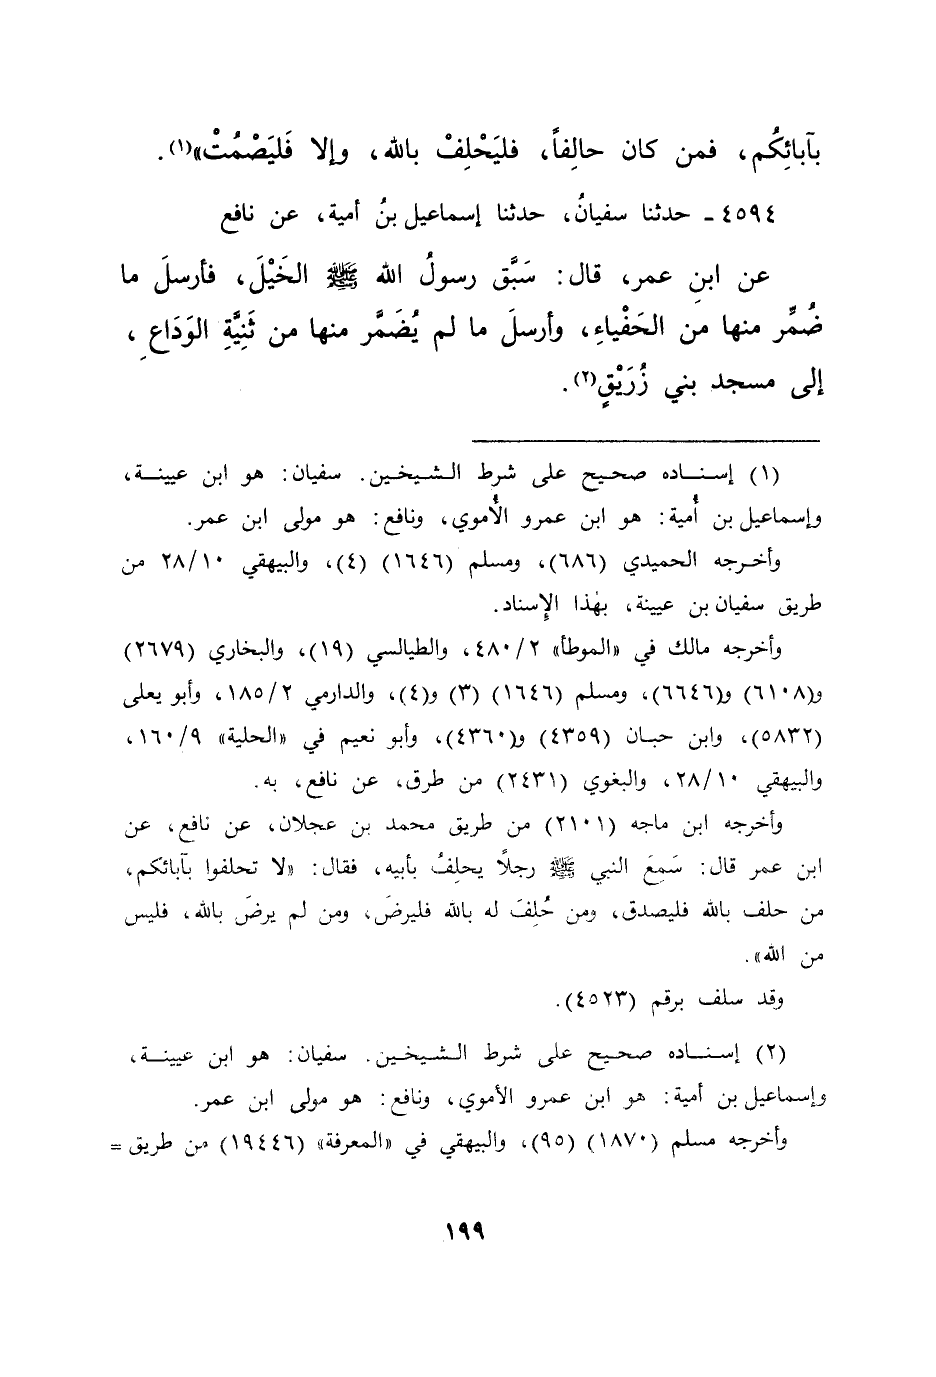 بآبائِكُم، فمن كان حالِفاً، فليَحْلِفْ بالله، وإلا فَليَصْمُتْ»(١).
٤٥٩٤ ـ حدثنا سفيانُ، حدثنا إسماعيل بنُ أمية، عن نافع
عن ابنِ عمر، قال: سَبَّق رسولُ الله ﷺ الخَيْلَ، فأرسلَ ما
ضُمِّر منها من الحَفْياءِ، وأرسلَ ما لم يُضَمَّر منها من ثَنِيَّةِ الوَدَاعِ،
إلى مسجد بني زُرَيْقٍ(٢).
(١) إسـنـــاده صحيح على شرط الـشـيـخـين. سفيان: هو ابن عيينـــة،
وإسماعيل بن أُمية: هو ابن عمرو الأُموي، ونافع: هو مولى ابن عمر.
وأخـرجه الحميدي (٦٨٦)، ومسلم (١٦٤٦) (٤)، والبيهقي ٢٨/١٠ من
طريق سفيان بن عيينة، بهٰذا الإِسناد.
وأخرجه مالك في «الموطأ» ٤٨٠/٢، والطيالسي (١٩)، والبخاري (٢٦٧٩)
و(٦١٠٨) و(٦٦٤٦)، ومسلم (١٦٤٦) (٣) و(٤)، والدارمي ١٨٥/٢، وأبو يعلى
(٥٨٣٢)، وابن حبـان (٤٣٥٩) و(٤٣٦٠)، وأبو نعيم في «الحلية» ١٦٠/٩،
والبيهقي ٢٨/١٠، والبغوي (٢٤٣١) من طرق، عن نافع، به.
وأخرجه ابن ماجه (٢١٠١) من طريق محمد بن عجلان، عن نافع، عن
ابن عمر قال: سَمِعَ النبي ﷺ رجلاً يحلِفُ بأبيه، فقال: «لا تحلفوا بآبائكم،
من حلف بالله فليصدق، ومن حُلِفَ له بالله فليرضَ، ومن لم يرضَ بالله، فليس
من الله».
وقد سلف برقم (٤٥٢٣).
(٢) إسـنـــاده صحيح على شرط الـشـيـخـين. سفيان: هو ابن عيينـــة،
وإسماعيل بن أمية: هو ابن عمرو الأموي، ونافع: هو مولى ابن عمر.
وأخرجه مسلم (١٨٧٠) (٩٥)، والبيهقي في «المعرفة» (١٩٤٤٦) من طريق =
١٩٩